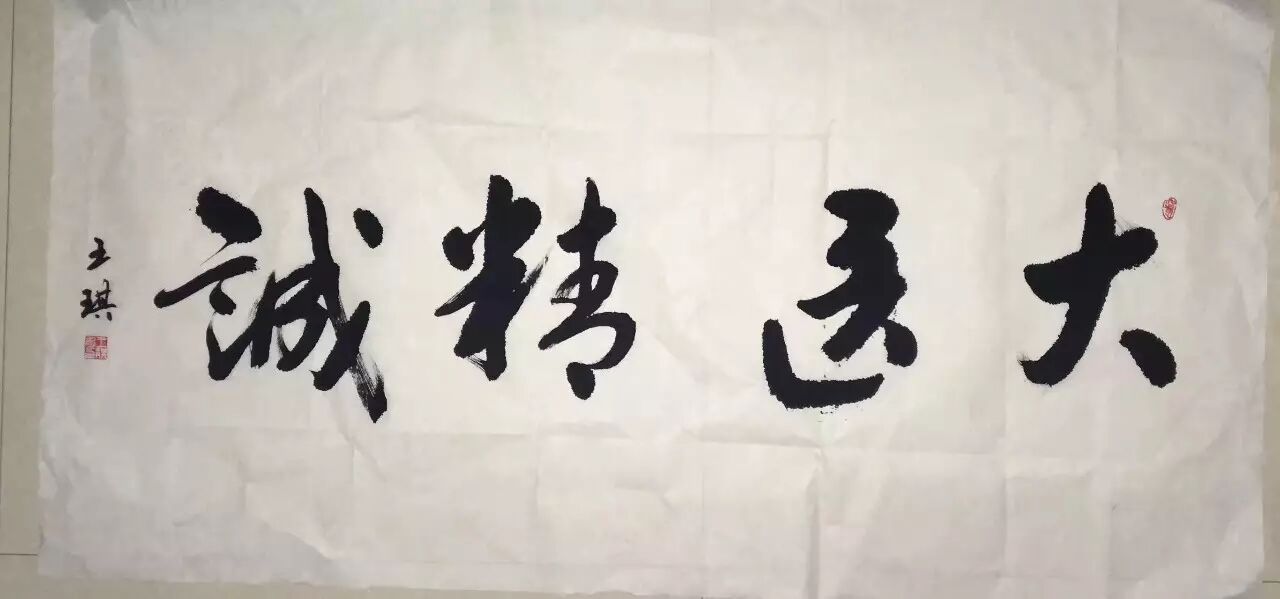 大医精誠
王琪